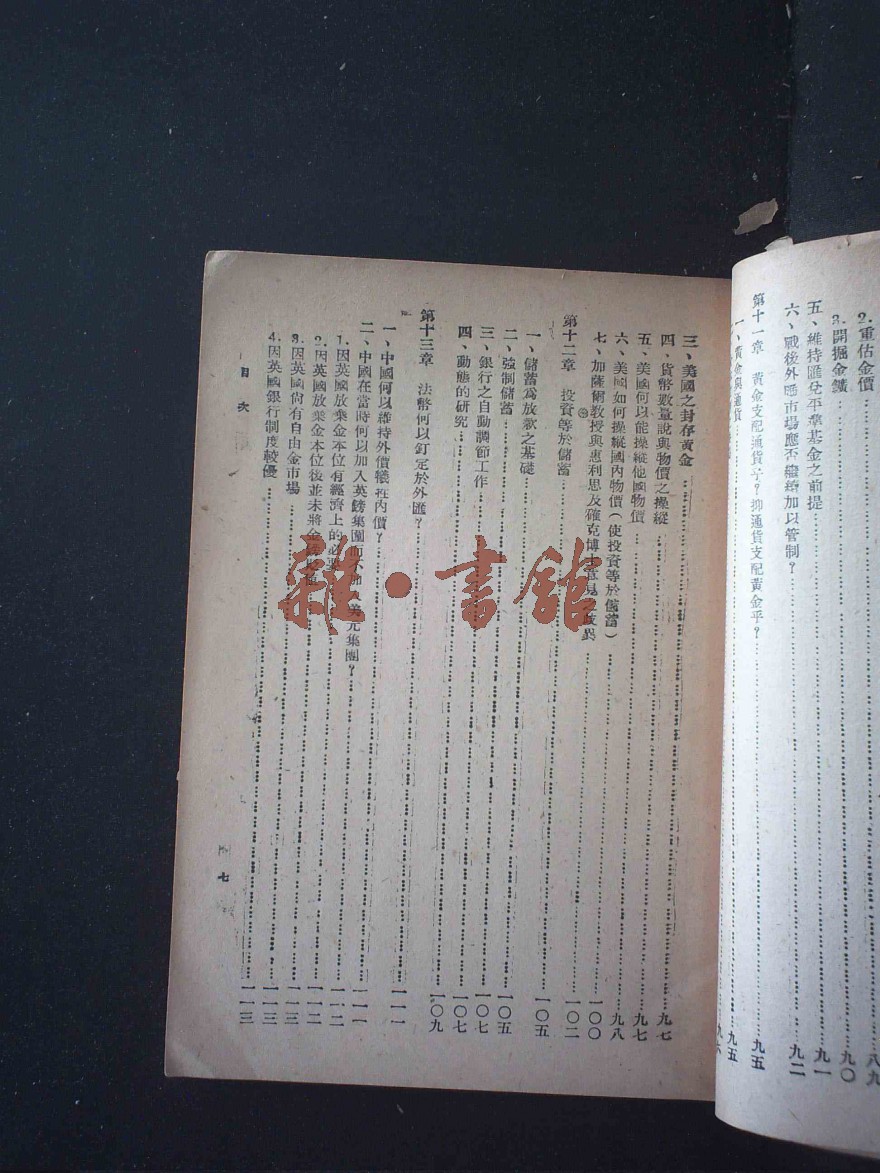 2.重估金價……八九
3.開掘金鑛……九〇
五、維持匯兌平準基金之前提……九一
六、戰後外匯市場應否繼續加以管制？……九二
第十一章　黃金支配通貨乎？抑通貨支配黃金乎？……九五
一、黃金與通貨……九五
九六
三、美國之封存黃金……九七
四、貨幣數量說與物價之操縱……九七
五、美國何以能操縱他國物價……九八
六、美國如何操縱國內物價（使投資等於儲蓄）……一〇〇
七、加薩爾教授與惠利思及確克博士意見之歧異……一〇二
第十二章　投資等於儲蓄……一〇五
一、儲蓄為放款之基礎……一〇五
二、強制儲蓄……一〇七
三、銀行之自動調節工作……一〇七
四、動態的研究……一〇九
第十三章　法幣何以釘定於外匯？……一一一
一、中國何以維持外價犧牲內價？……一一一
二、中國在當時何以加入英鎊集團而不加入美元集團？……一一二
1.因英國放棄金本位有經濟上的必要……一一二
2.因英國放棄金本位後並未將金……一一三
3.因英國尚有自由金市場……一一三
4.因英國銀行制度較優……一一三
目次
七
雜·書館